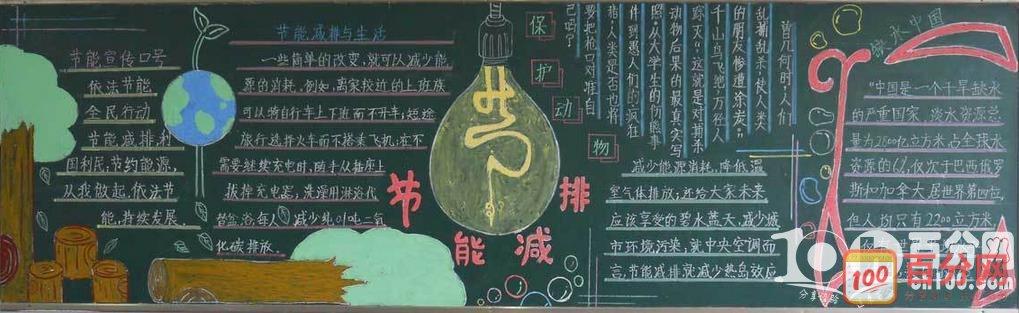 节能宣传口号
依法节能
全民行动
节能减排利
国利民,节约能源,
从我做起.依法节
能,持续发展.
节能减排与生活
一些简单的改变,就可以减少能
源的消耗,例如,离家较近的上班族
可以骑自行车上下班而不开车;短途
旅行选择火车而不搭乘飞机;在不
需要继续充电时,随手从插座上
拔掉充电器;洗澡用淋浴代
替盆浴,每人
化碳排放.
节能减排
保护动物
曾几何时,人们
乱捕乱杀,使人类
的朋友惨遭涂炭.“
千山鸟飞绝,万径人
踪灭”这就是对捕杀
动物后果的最真实写
照.从大学生的伤熊事
件到愚人们的疯狂
猎,人类是否也将
要把枪口对准自
己吗?
减少能源消耗,降低温
室气体排放,还给大家未来
应该享受的碧水蓝天,减少城
市环境污染,就中央空调而
言,节能减排就减少热岛效应
缺水中国
“中国是一个干旱缺水
的严重国家,淡水资源总
量为28000亿立方米占全球水
资源的6%,仅次于巴西俄罗
斯和加拿大居世界第四位,
但人均只有2200立方米
100百分网
100 百分网
cn100.com